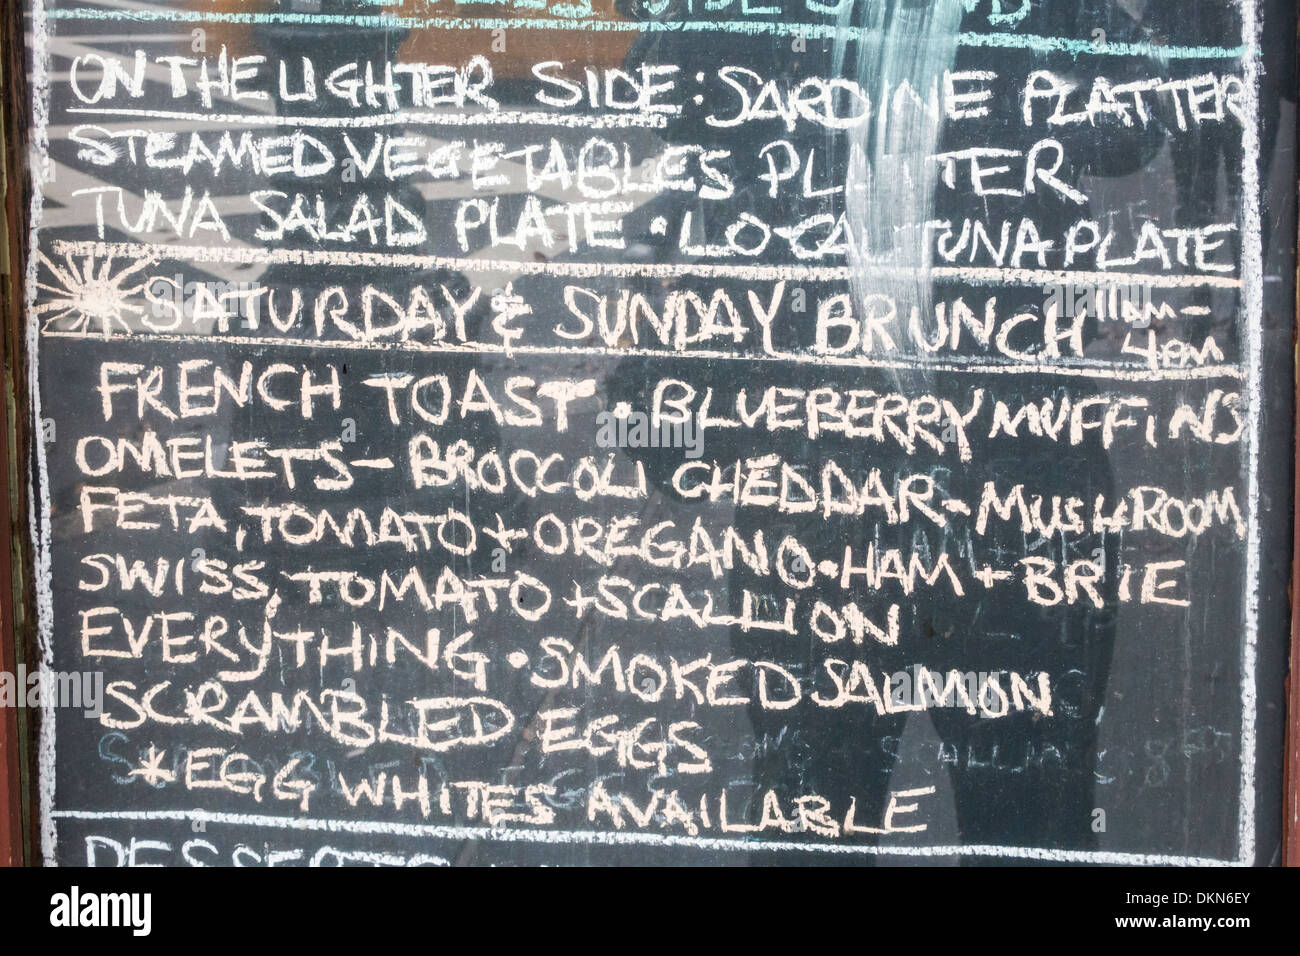 SIDE
ON THE LIGHTER SIDE: SARDINE PLATTER
STEAMED VEGETABLES PLATTER
TUNA SALAD PLATE • LOCAL TUNA PLATE
SATURDAY & SUNDAY BRUNCH 11AM-4PM
FRENCH TOAST • BLUEBERRY MUFFINS
OMELETS - BROCCOLI CHEDDAR - MUSHROOM
FETA, TOMATO + OREGANO • HAM + BRIE
SWISS, TOMATO + SCALLION
EVERYTHING • SMOKED SALMON
SCRAMBLED EGGS
*EGG WHITES AVAILABLE
DESSERTS
alamy stock photo
DKN6EY
www.alamy.com